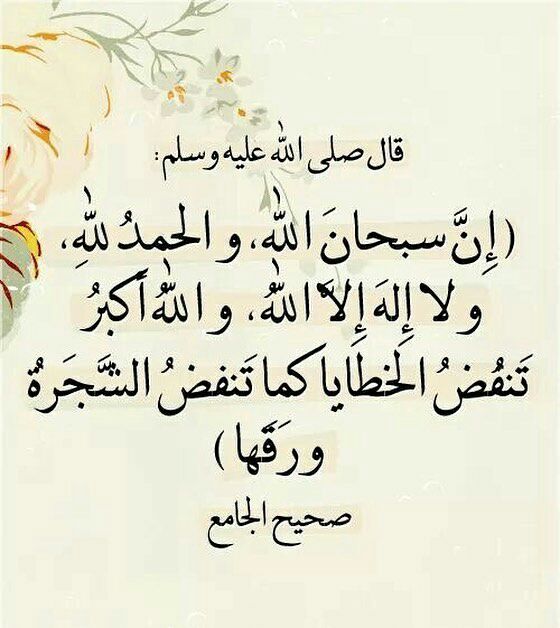 قال صلى الله عليه وسلم:
(إِنَّ سبحانَ اللهِ، و الحمدُ للهِ،
و لا إِلهَ إِلاَّ اللهُ، و اللهُ أَكبرُ
تَنفُضُ الخطايا كما تَنفضُ الشَّجَرةُ
ورَقَها)
صحيح الجامع